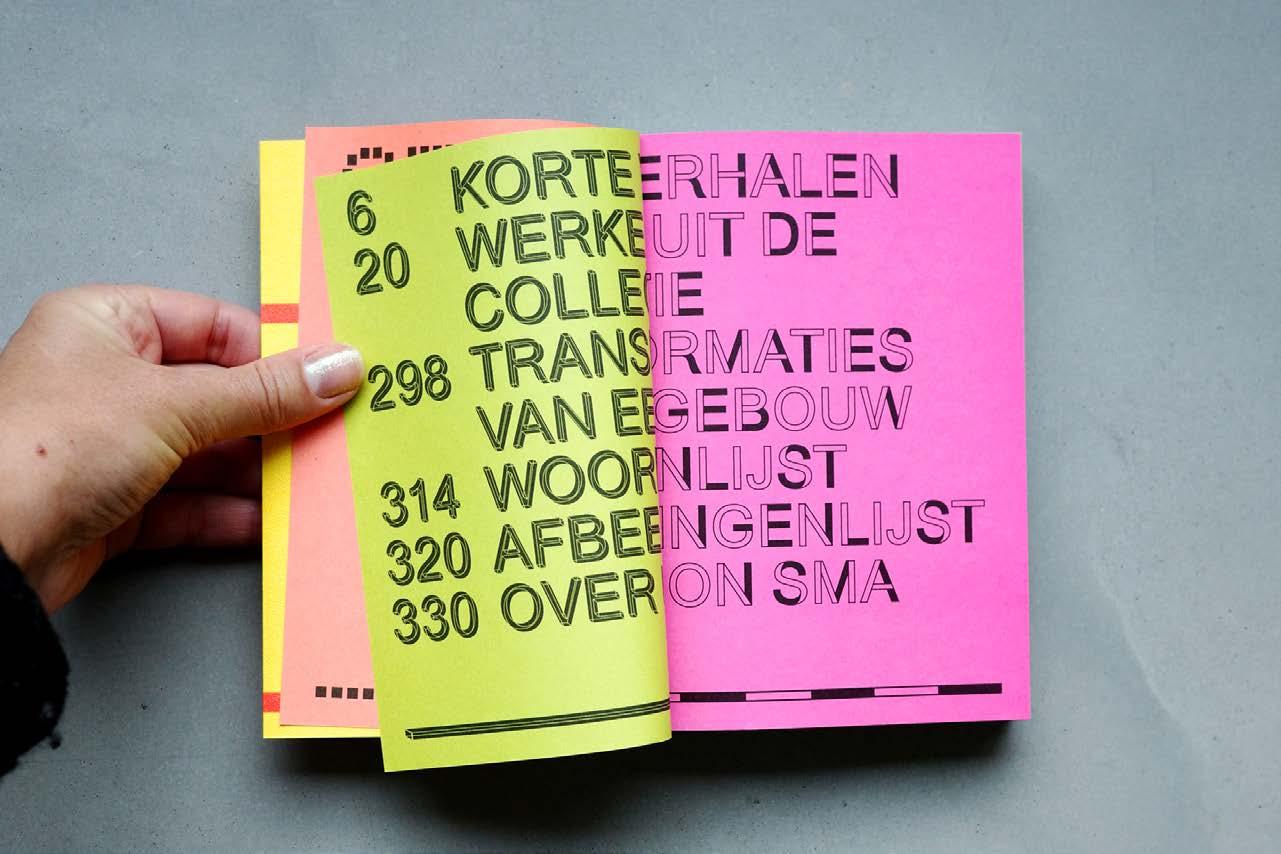 6 KORTE ERHALEN
20 WERKE UIT DE
COLLE TIE
298 TRANS ORMATIES
VAN EE GEBOUW
314 WOOR NLIJST
320 AFBEE INGENLIJST
330 OVER ON SMA